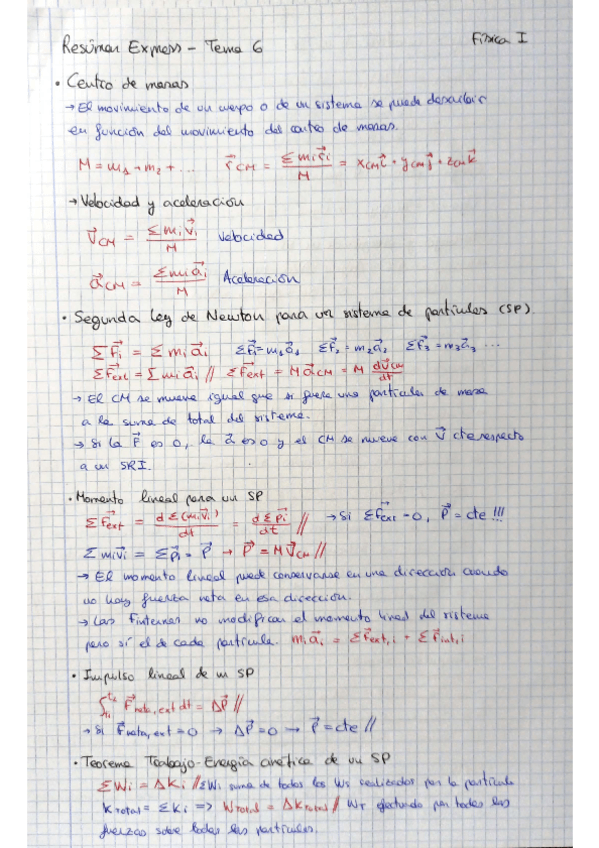 Resúmen Express - Tema 6
Física I
• Centro de masas
→ El movimiento de un cuerpo o de un sistema se puede describir
en función del movimiento del centro de masas.
M = m₁ + m₂ + ... r⃗CM = Σ mi r⃗i / M = xCM i⃗ + yCM j⃗ + zCM k⃗
→ Velocidad y aceleración
v⃗CM = Σ mi v⃗i / M Velocidad
a⃗CM = Σ mi a⃗i / M Aceleración
• Segunda Ley de Newton para un sistema de partículas (SP)
Σ F⃗i = Σ mi a⃗i ΣF⃗1 = m₁a⃗₁ ΣF⃗2 = m₂a⃗₂ ΣF⃗3 = m₃a⃗₃ ...
ΣF⃗ext = Σ mi a⃗i // ΣF⃗ext = M a⃗CM = M dv⃗CM / dt
→ El CM se mueve igual que si fuera una partícula de masa
a la suma de total del sistema.
→ Si la F⃗ es 0, la a⃗ es 0 y el CM se mueve con v⃗ cte respecto
a un SRI.
• Momento lineal para un SP
ΣF⃗ext = d Σ(mi v⃗i) / dt = d Σ p⃗i / dt // → Si ΣF⃗ext = 0, P⃗ = cte !!!
Σ mi v⃗i = Σ p⃗i = P⃗ → P⃗ = M v⃗CM //
→ El momento lineal puede conservarse en una dirección cuando
no hay fuerza neta en esa dirección.
→ Las Finternas no modifican el momento lineal del sistema
pero sí el de cada partícula. mi a⃗i = ΣF⃗ext,i + ΣF⃗int,i
• Impulso lineal de un SP
∫ F⃗neta,ext dt = ΔP⃗ //
→ Si F⃗neta,ext = 0 → ΔP⃗ = 0 → P⃗ = cte //
• Teorema Trabajo-Energía cinética de un SP
ΣWi = ΔKi // ΣWi suma de todos los Ws realizados por la partícula
Ktotal = ΣKi => Wtotal = ΔKtotal // WT efectuado por todas las
fuerzas sobre todas las partículas.